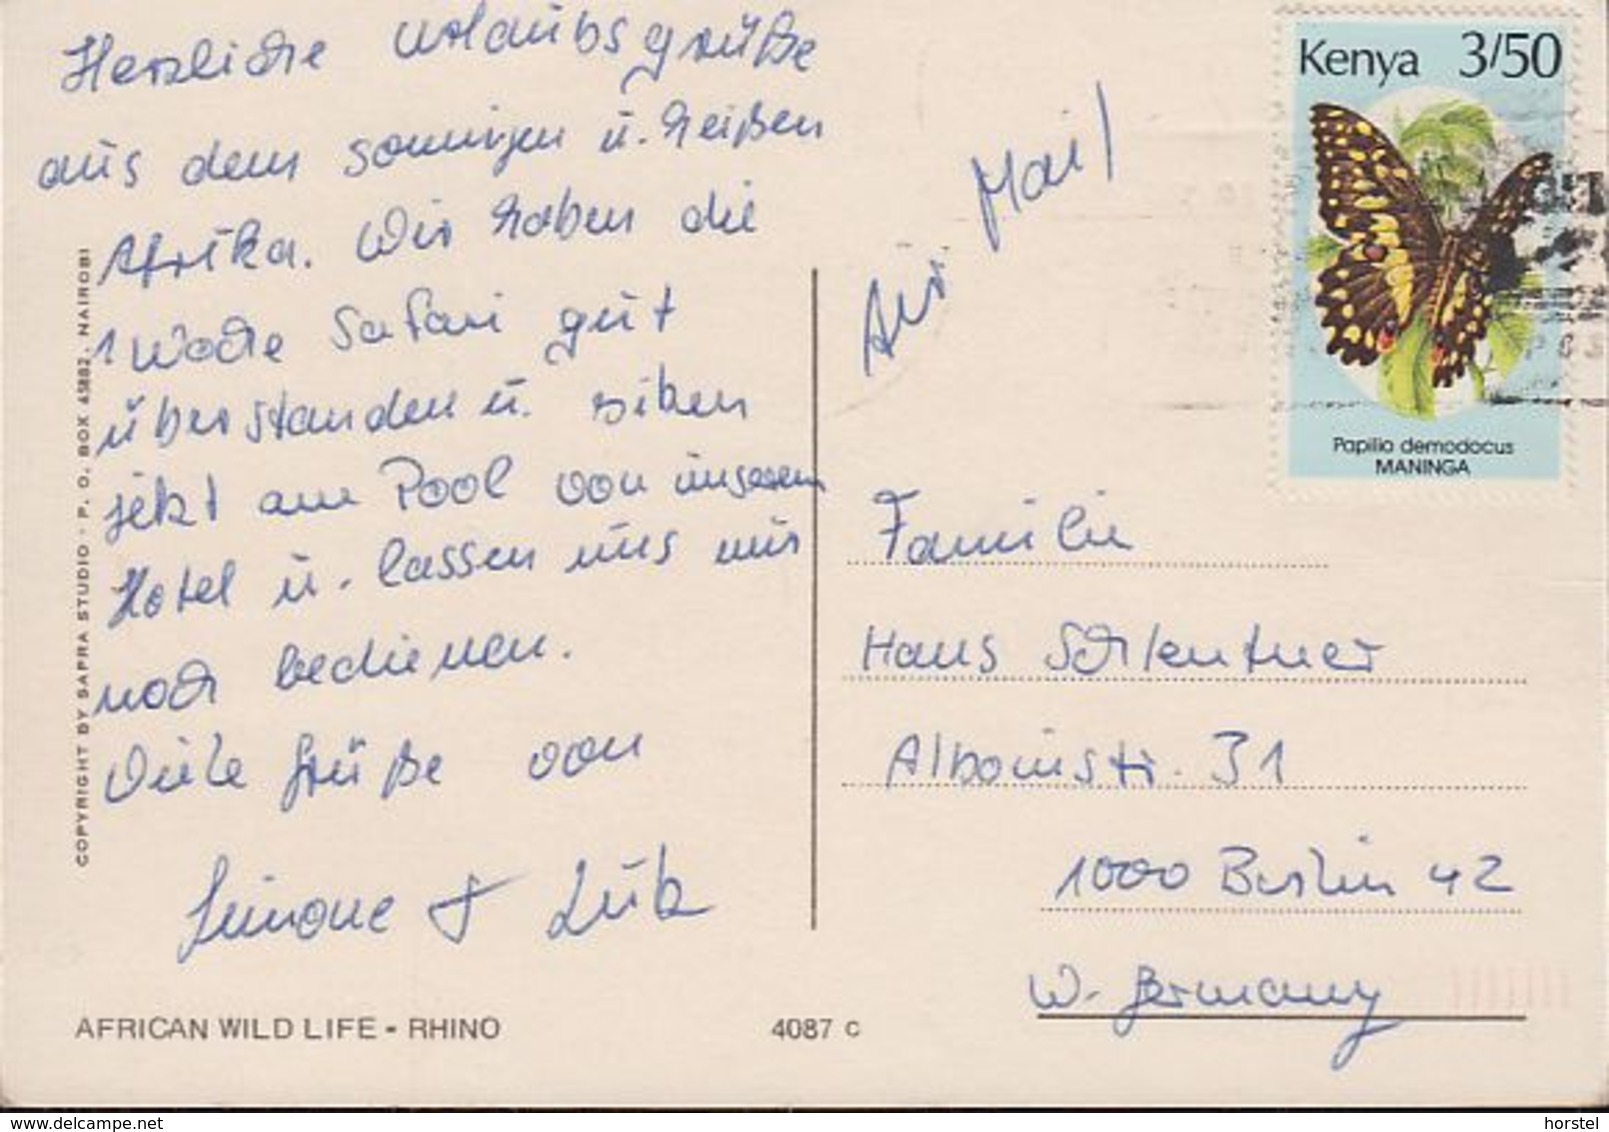 Herzliche Urlaubsgrüße
aus dem sonnigen u. heißen
Afrika. Wir haben die
1 Woche Safari gut
überstanden u. sitzen
jetzt am Pool von unserem
Hotel u. lassen uns nur
noch bedienen.
Viele Grüße von
Simone + Lutz
COPYRIGHT BY SAPRA STUDIO · P. O. BOX 45882, NAIROBI
AFRICAN WILD LIFE - RHINO
4087 c
Air Mail
Kenya 3/50
Papilio demodocus
MANINGA
Familie
Hans Schlentner
Alboinstr. 31
1000 Berlin 42
W. Germany
www.delcampe.net
horstel